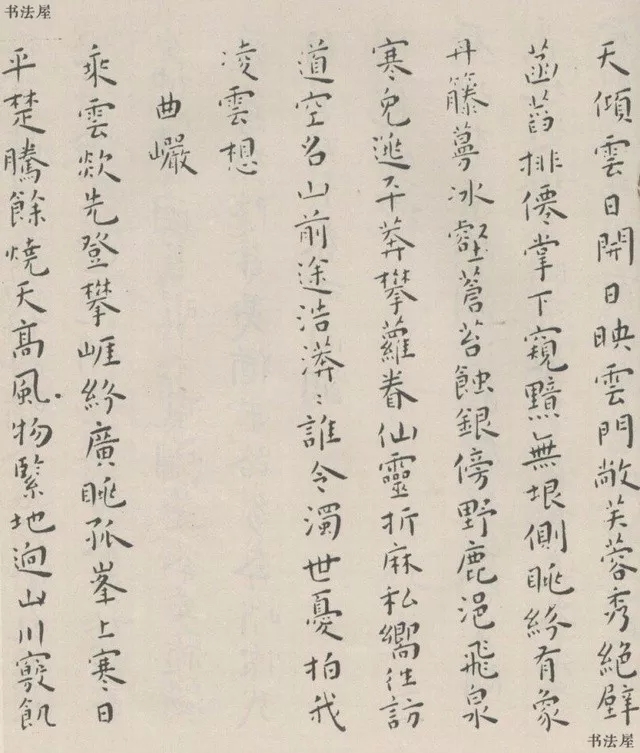 书法屋
天傾雲日開日映雲門敞芙蓉秀絕壁
菡萏排僊掌下窺黯無垠側眺紛有象
丹籐蔓冰壑蒼苔蝕銀傍野鹿浥飛泉
寒兔逃平莽攀蘿眷仙靈折麻私嚮往訪
道空名山前途浩漭〻誰令濁世憂拍我
凌雲想
曲巖
乘雲欻先登攀崕紛廣眺孤峯上寒日
平楚騰餘燒天高風物緊地迥山川飢
书法屋